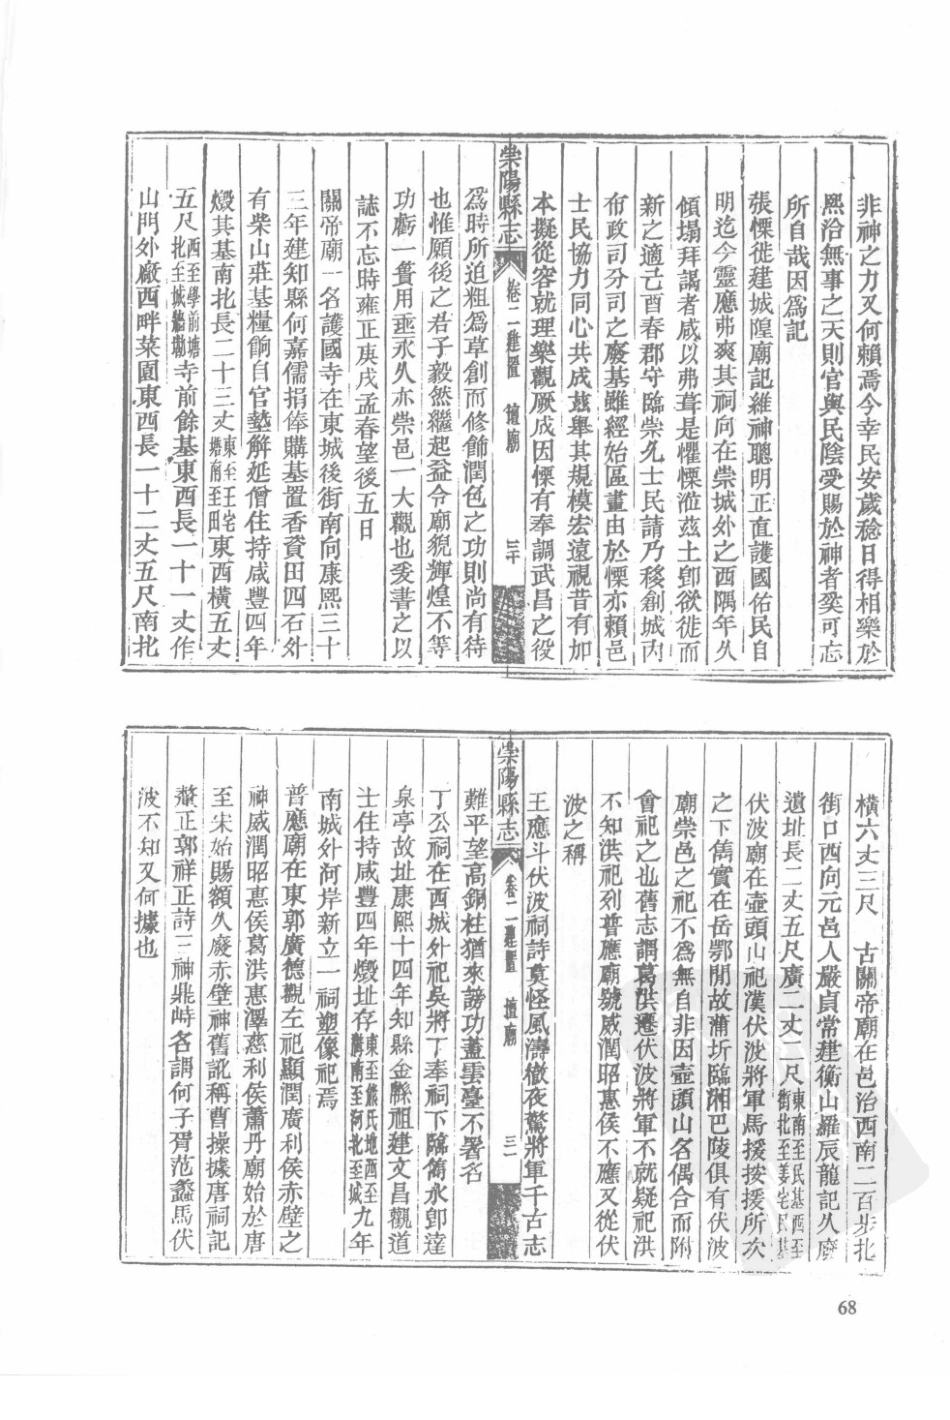 非神之力又何賴焉今幸民安歲稔日得相樂於
熙洽無事之天則官與民陰受賜於神者奚可忘
所自哉因爲記
張慄徙建城隍廟記維神聰明正直護國佑民自
明迄今靈應弗爽其祠向在崇城外之西隅年久
傾塌拜謁者咸以弗葺是懼慄涖茲土卽欲徙而
新之適己酉春郡守臨崇允士民請乃移創城內
布政司分司之廢基雖經始區畫由於慄亦賴邑
士民協力同心共成茲舉其規模宏遠視昔有加
本擬從容就理樂觀厥成因慄有奉調武昌之役
崇陽縣志 卷二 建置 壇廟 三十
爲時所迫粗爲草創而修飾潤色之功則尚有待
也惟願後之君子毅然繼起益令廟貌輝煌不等
功虧一簣用垂永久亦崇邑一大觀也爰書之以
誌不忘時雍正庚戌孟春望後五日
關帝廟一名護國寺在東城後街南向康熙三十
三年建知縣何嘉儒捐俸購基置香資田四石外
有柴山莊基糧餉自官墊解延僧住持咸豐四年
燬其基南北長二十三丈東至王宅塘南至田東西橫五丈
五尺西至學前塘北至城牆勘寺前餘基東西長一十一丈作
山門外廠西畔菜園東西長一十二丈五尺南北
橫六丈三尺 古關帝廟在邑治西南二百步北
街口西向元邑人嚴貞常建衡山羅辰龍記久廢
遺址長二丈五尺廣二丈二尺東南至民基西至街北至姜宅民基
伏波廟在壺頭山祀漢伏波將軍馬援按援所次
之下雋實在岳鄂閒故蒲圻臨湘巴陵俱有伏波
廟崇邑之祀不爲無自非因壺頭山名偶合而附
會祀之也舊志謂葛洪遷伏波將軍不就疑祀洪
不知洪祀列普應廟號威潤昭惠侯不應又從伏
波之稱
王應斗伏波祠詩莫怪風濤徹夜驚將軍千古志
崇陽縣志 卷二 建置 壇廟 三一
難平望高銅柱猶來謗功蓋雲臺不署名
丁公祠在西城外祀吳將丁奉祠下臨雋水卽達
泉亭故址康熙十四年知縣金縣祖建文昌觀道
士住持咸豐四年燬址存東至熊氏地西至溝南至河北至城九年
南城外河岸新立一祠塑像祀焉
普應廟在東郭廣德觀左祀顯潤廣利侯赤壁之
神威潤昭惠侯葛洪惠澤慈利侯蕭丹廟始於唐
至宋始賜額久廢赤壁神舊訛稱曹操據唐祠記
釐正郭祥正詩三神鼎峙各謂何子胥范蠡馬伏
波不知又何據也
68